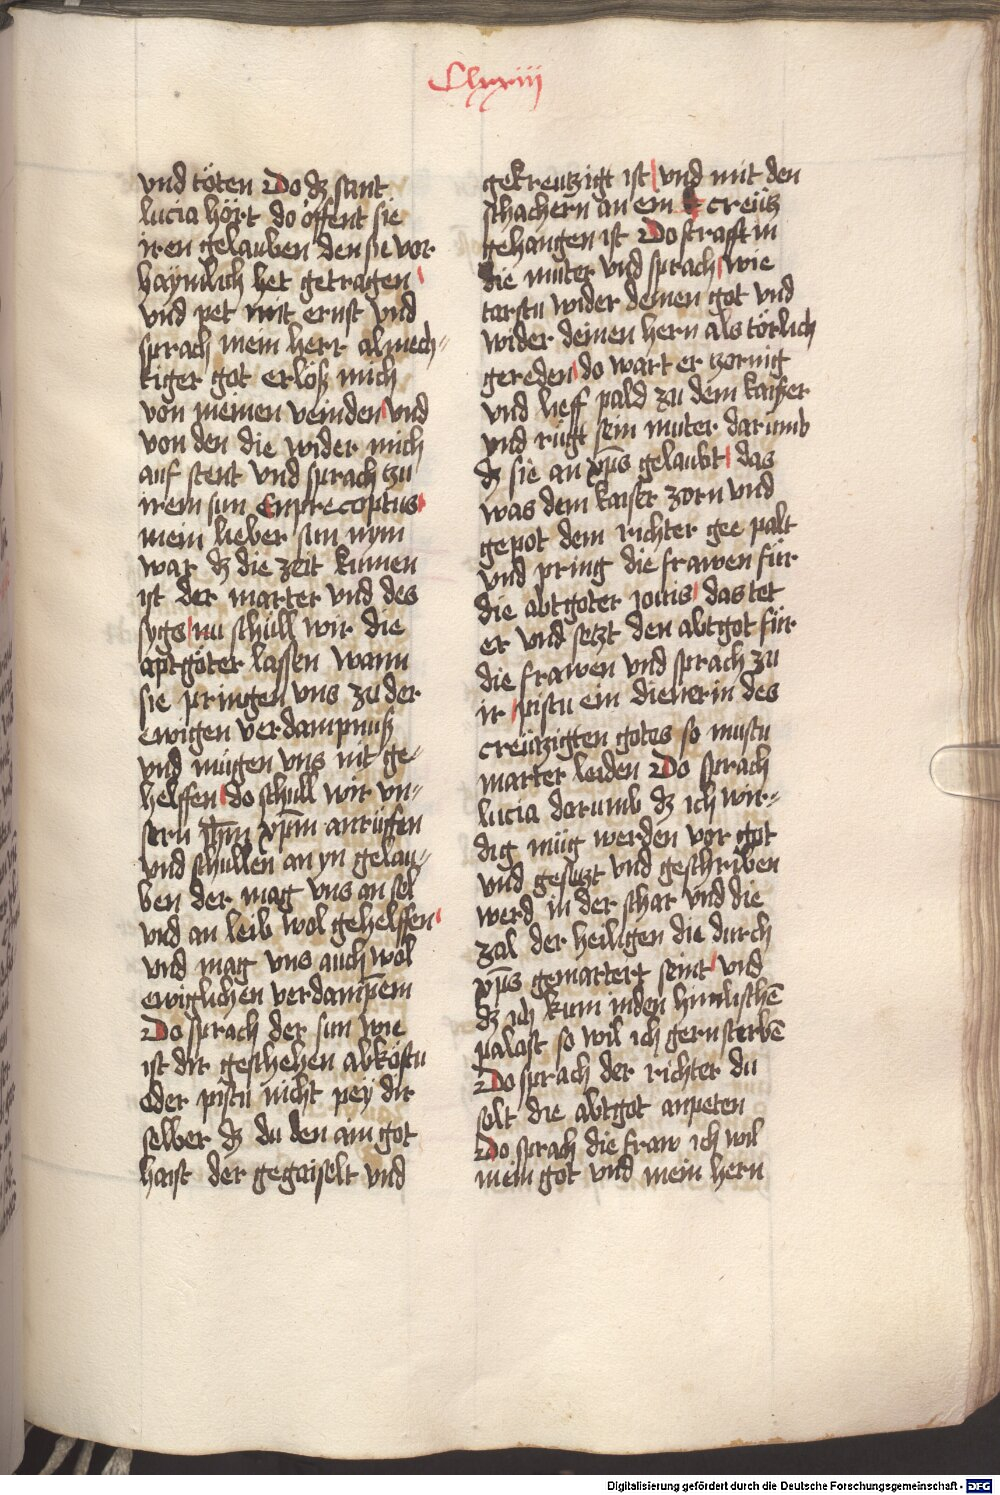 Clxxiii
vnd töten Do dz sant
lucia hört do öffent sie
iren gelauben den sie vor
haymlich het getragen
vnd pet mit ernst vnd
sprach mein herr almech-
tiger got erlöß mich
von meinen veinden vnd
von den die wider mich
auf stent vnd sprach zu
irem sun Euprecoptus
mein lieber sun nym
war dz die zeit kumen
ist der marter vnd des
sygs nu schüll wir die
aptgöter lassen wann
sie pringen vns zu der
ewigen verdampnuß
vnd mügen vns nit ge-
helffen do schull wir vn-
sern jhm xpm anrüffen
vnd schullen an yn gelau-
ben der mag vns an sel
vnd an leib wol gehelffen
vnd mag vns auch wol
ewiglichen verdampem
Do sprach der sun wie
ist dir geschehen abköstu
oder pistu nicht pey dir
selber dz du den ain got
haist der gegaiselt vnd
gekreutzigt ist vnd mit den
schachern an em creütz
gehangen ist Do strafft in
die muter vnd sprach wie
tarstu wider deinen got vnd
wider deinen hern als törlich
gereden do wart er zornig
vnd lieff pald zu dem kaißer
vnd rügt sein muter darumb
dz sie an xps gelaubt das
was dem kaiser zorn vnd
gepot dem richter gee palt
vnd pring die frawen für
die abtgoter iouis das tet
er vnd setzt den abtgot für
die frawen vnd sprach zu
ir pistu ein dienerin des
creützigten gotes so mustu
marter leiden Do sprach
lucia darumb dz ich wir-
dig müg werden vor got
vnd gesetzt vnd geschriben
werd in der schar vnd die
zal der heiligen die durch
xps gemartert seint vnd
dz ich kum in den himlischē
palast so wil ich gern sterbē
Do sprach der richter du
solt die abtgot anpeten
Do sprach die fraw ich wil
mein got vnd mein hern
Digitalisierung gefördert durch die Deutsche Forschungsgemeinschaft - DFG